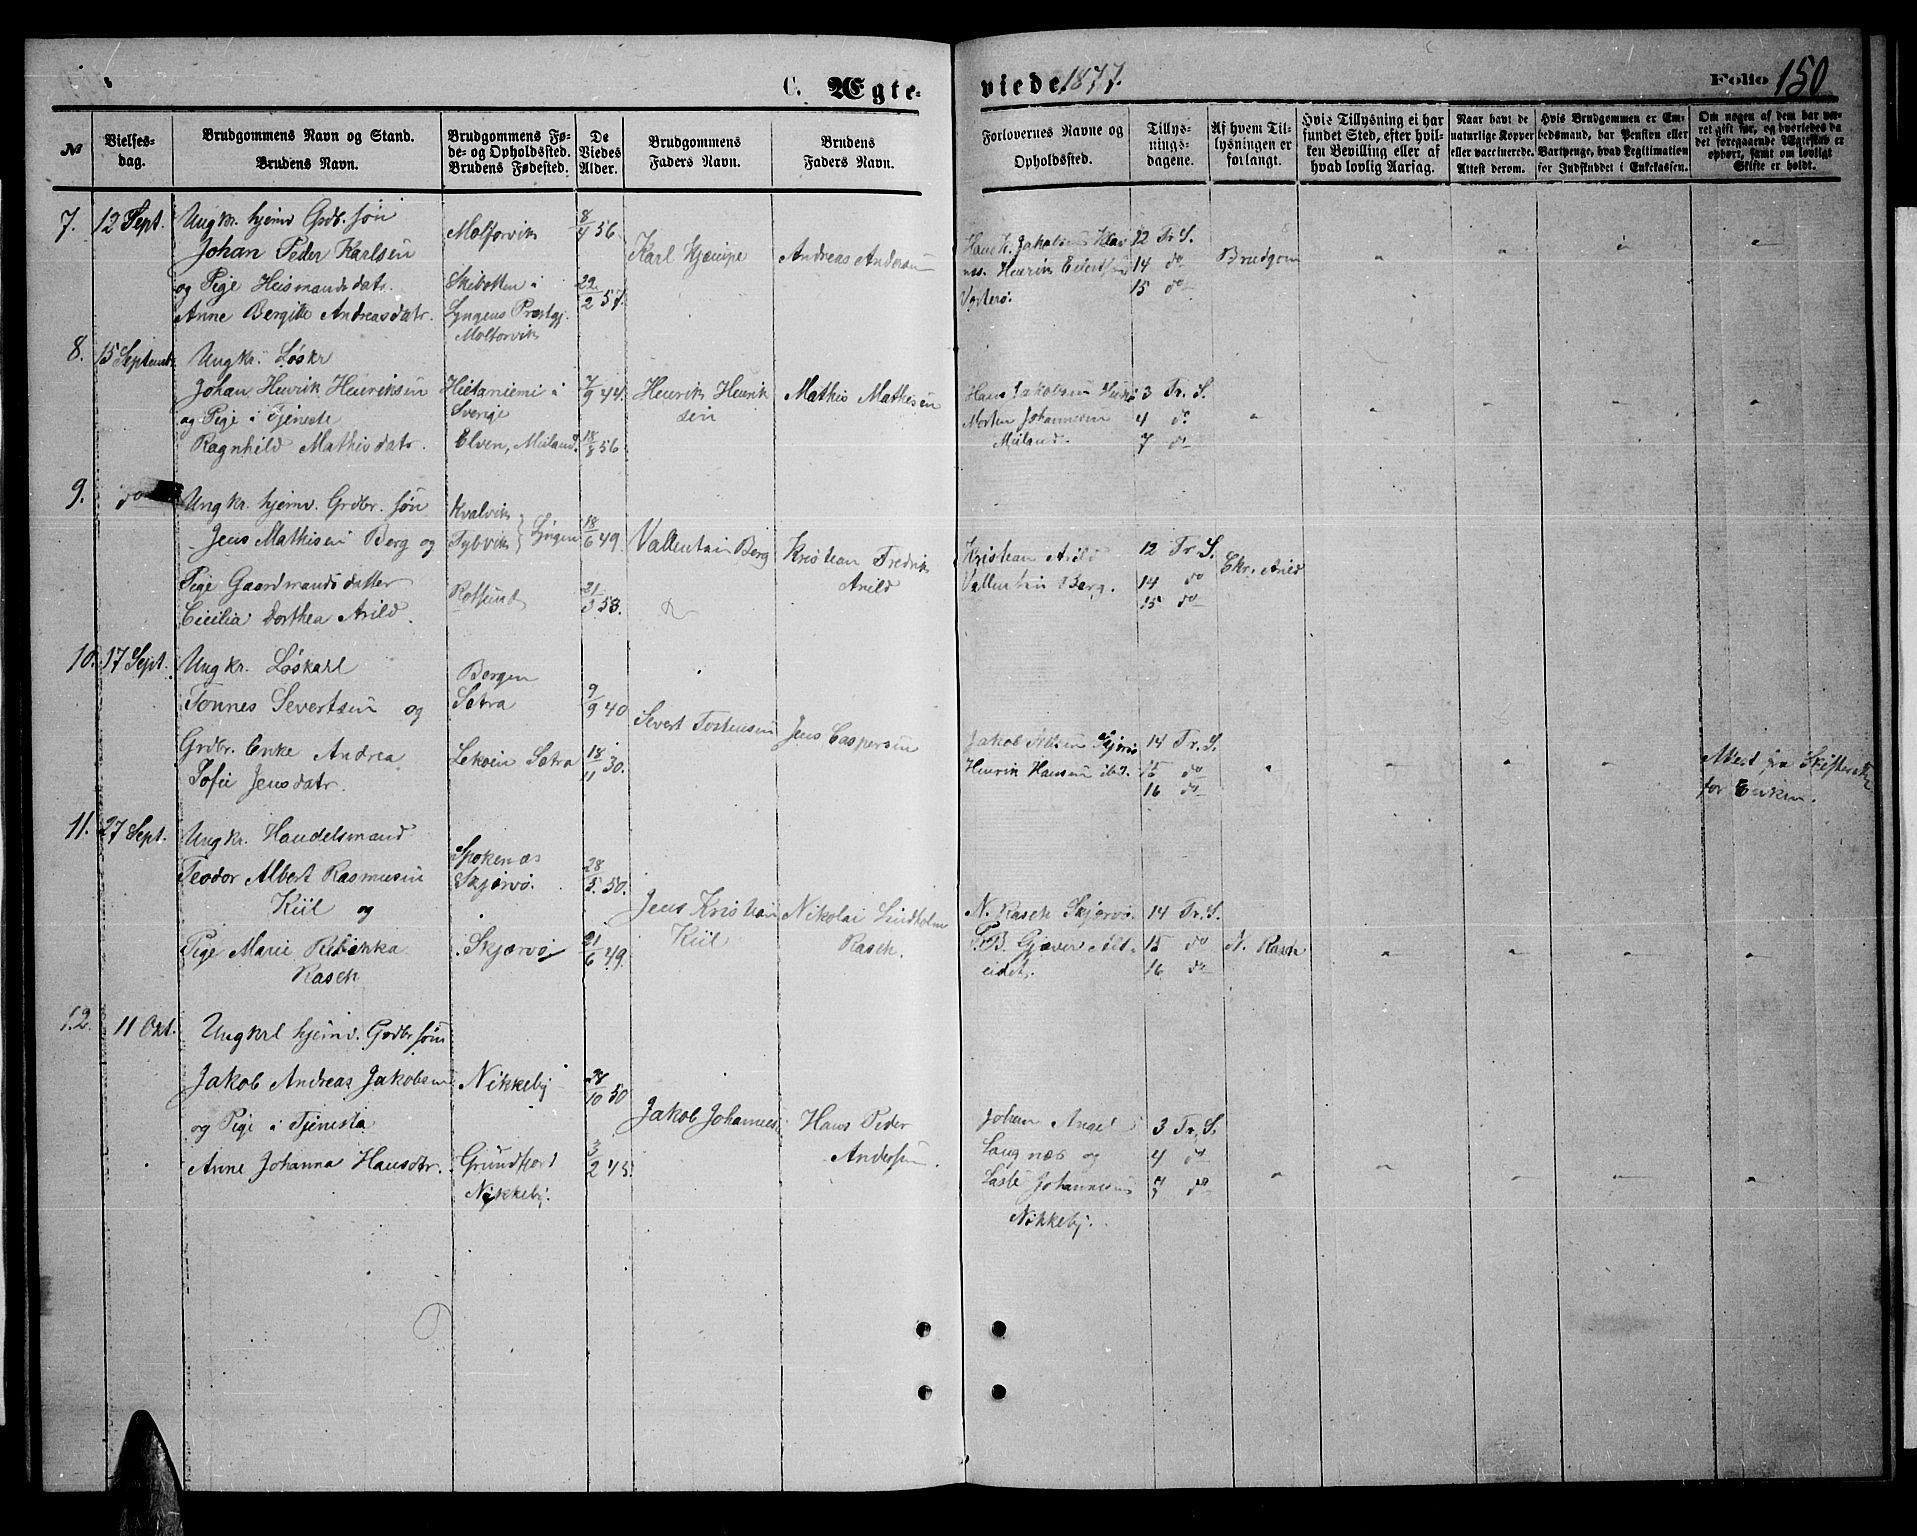 C. Ægte-
viede 1877.
Folio 150
No
Vielses-
dag.
Brudgommens Navn og Stand.
Brudens Navn.
Brudgommens Fø-
de- og Opholdssted.
Brudens Fødested.
De
Viedes
Alder.
Brudgommens
Faders Navn.
Brudens
Faders Navn.
Forlovernes Navne og
Opholdssted.
Tillys-
nings-
dagene.
Af hvem Til-
lysningen er
forlangt.
Hvis Tillysning ei har
fundet Sted, efter hvil-
ken Bevilling eller af
hvad lovlig Aarsag.
Naar havt de
naturlige Kopper
eller vaccinerede.
Attest derom.
Hvis Brudgommen er Em-
bedsmand, har Pension eller
Vartpenge, hvad Legitimation
for Indskuddet i Enkekassen.
Om nogen af dem har væ-
ret gift før, og hvorledes da
det foregaaende Ægteskab er
ophørt, samt om lovligt
Skifte er holdt.
7.
12 Sept.
Ungkr. hjemv Grdb. søn
Johan Peder Karlsen
og Pige Heismandsdatr.
Anne Bergitte Andreasdatr.
Molforvik
Skibotten i
Lyngens Prestgj.
Molforvik
8/4 56.
22/2 57.
Karl Kjempe
Andreas Andersen
Hans K. Jakobsen Klav
nes. Henrik Eilertsen
Vorterø.
12 Tr. S.
14 do
15 do
Brudgom
8.
15 Septembr
Ungkr. Løskr
Johan Henrik Henriksen
og Pige i Tjeneste
Ragnhild Mathisdatr.
Hietaniemi i
Sverige
Elven, Meiland.
7/9 44.
18/8 56.
Henrik Henrik
sen
Mathis Mathisen
Hans Jakobsen
Morten Johannesen
Meiland.
3 Tr. S.
4 do
7 do
9.
do
Ungkr. hjemv. Grdbr. søn
Jens Mathisen Berg og
Pige Gaardmandsdatter
Cicilia Dorthea Arild.
Kvalvik
Tybvik } Lyngen
Rotsund
18/6 49.
21/3 53.
Vallentin Berg
Kristian Fredrik
Arild
Kristian Arild
Vallentin Berg.
12 Tr. S.
14 do
15 do
Chr. Arild
10.
17 Sept.
Ungkr. Løskarl
Tönnes Severtsen og
Grdbr. Enke Andrea
Sofie Jensdatr.
Bergen
Satra
Lekvein Satra
9/9 40
18/11 30.
Severt Tostensen
Jens Caspersen
Jakob Nilsen Skjervø
Henrik Hansen ibd.
14 Tr. S.
15 do
16 do
Attest fra Skifteretten
for Enken.
11.
27 Sept.
Ungkr. Handelsmand
Teodor Albert Rasmusen
Kiil og
Pige Marie Rebekka
Rasch
Spokenæs
Skjervø.
Skjærvø
28/5. 50.
21/6 49.
Jens Kristian
Kiil
Nikolai Lindholm
Rasch.
N. Rasch Skjærvø.
Gjæver Alt-
eidet.
14 Tr. S.
15 do
16 do
N. Rasch
12.
11 Okt.
Ungkrl hjemv. Grdbr søn
Jakob Andreas Jakobsen
og Pige i Tjenesta
Anne Johanna Hansdtr.
Nikkeby
Grundfjord
Nikkeby.
28/10 50
3/2 45.
Jakob Johannes
Hans Peder
Andersen.
Johan Angel
Langnæs og
Lasse Johannesen
Nikkeby.
3 Tr. S.
4 do
7 do